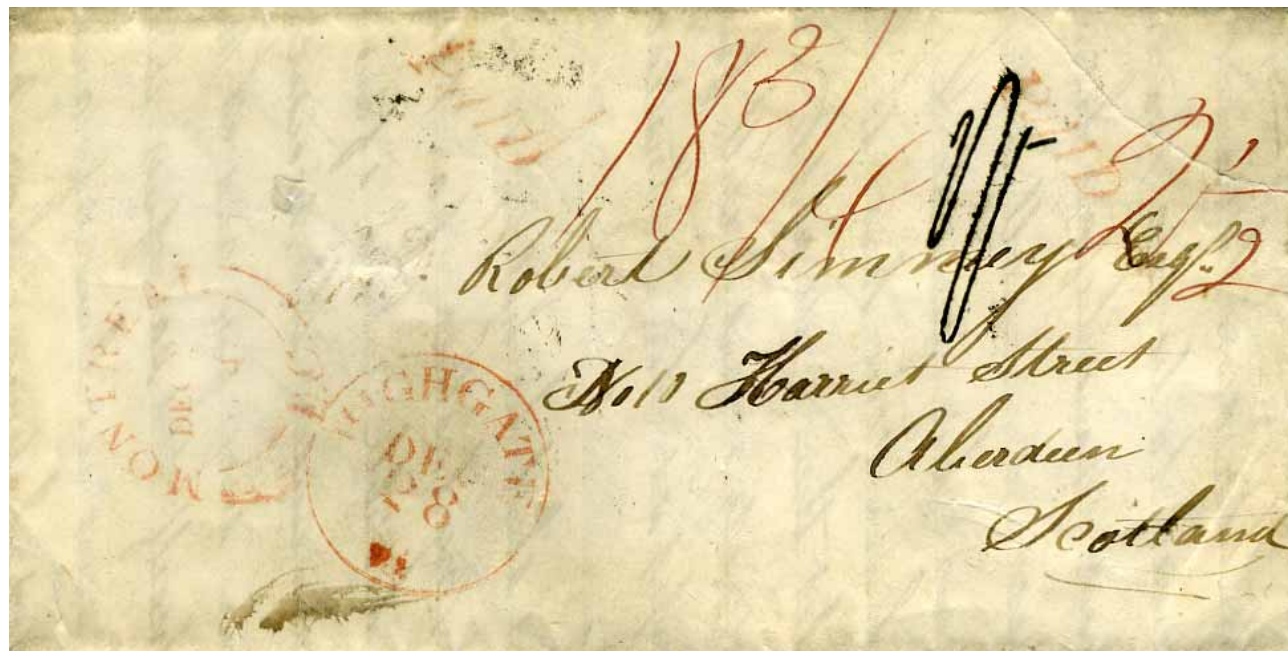 PAID
PAID
18 3/4
2/-
2
Robert Simmey Esqr.
No 11 Harriet Street
Aberdeen
Scotland
MONTREAL
DEC
HIGHGATE
DE
28